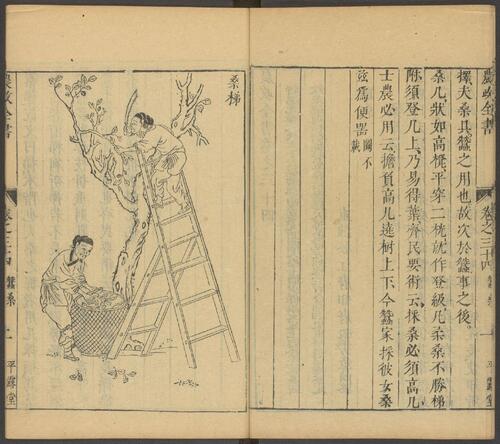 農政全書
卷之三十四
蠶桑
一
平露堂
擇夫桑具蠶之用也故次於蠶事之後
桑几狀如高凳平穿二桄就作登級凡柔桑不勝梯
附須登几上乃易得葉齊民要術云採桑必須高几
士農必用云擔負高几遶樹上下今蠶家採彼女桑
茲爲便器
桑梯
農政全書
卷之三十四
蠶桑
二
平露堂